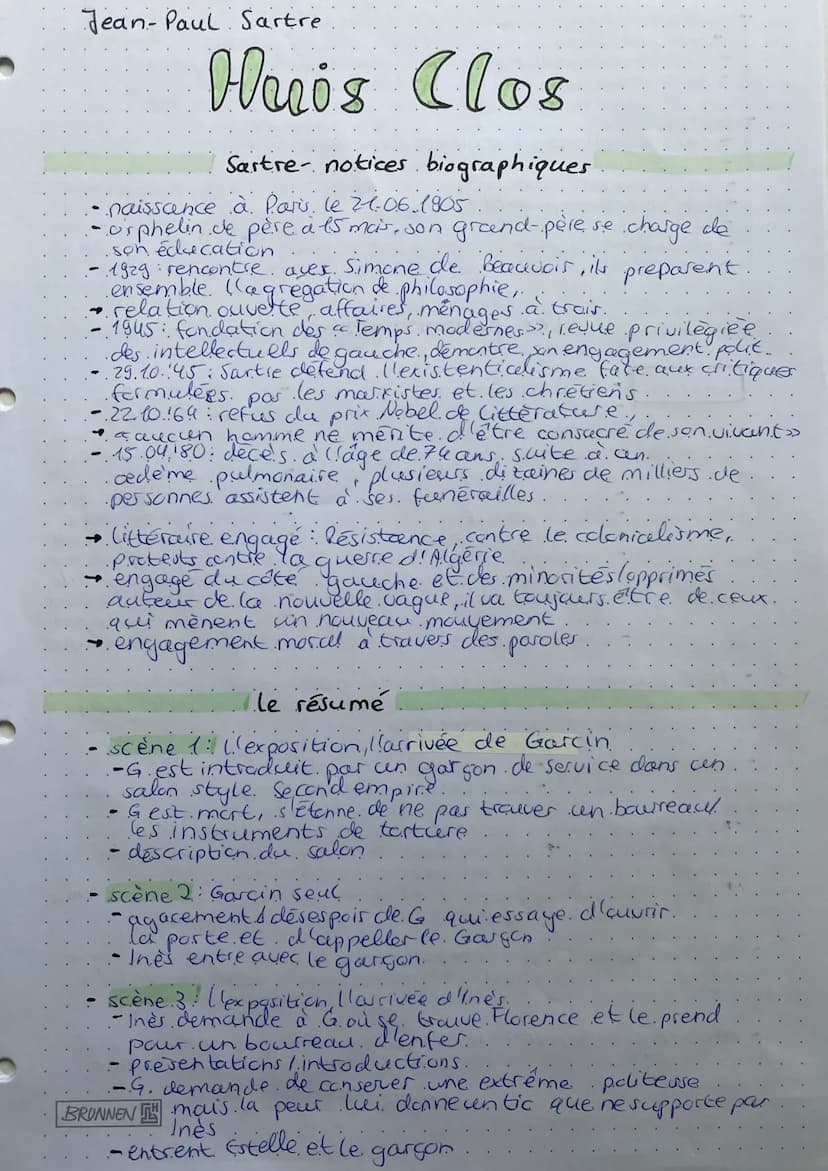 Jean-Paul Sartre
Huis Clos
Sartre- notices biographiques
- naissance à Paris le 21.06.1905
- orphelin de père à 15 mois, son grand-père se charge de
son éducation
- 1929: rencontre avec Simone de Beauvoir, ils preparent
ensemble l'agrégation de philosophie,
→ relation ouverte, affaires, ménages à trois.
- 1945: fondation des «Temps modernes», revue privilégiée
des intellectuels de gauche, démontre son engagement polit.
- 29.10.'45: Sartre défend l'existenticalisme face aux critiques
formulées par les marxistes et les chrétiens
- 22.10.'64: refus du prix Nobel de Littérature,
→ «aucun homme ne mérite d'être consacré de son vivant»
- 15.04.'80: décès à l'âge de 74 ans suite à un
œdème pulmonaire, plusieurs dizaines de milliers de
personnes assistent à ses funérailles
→ littéraire engagé: Résistance, contre le colonicalisme,
protests contre la guerre d'Algérie
→ engagé du côté gauche et des minorités/opprimés
auteur de la nouvelle vague, il va toujours être de ceux
qui mènent un nouveau mouvement
→ engagement moral à travers des paroles
le résumé
- scène 1: L'exposition, l'arrivée de Garcin
- G. est introduit par un garçon de service dans un
salon style Second empire
- G est mort, s'étonne de ne pas trouver un bourreau/
les instruments de torture
- description du salon
- scène 2: Garcin seul
- agacement & désespoir de G qui essaye d'ouvrir
la porte et d'appeller le Garçon
- Inès entre avec le garçon
- scène 3: L'exposition, l'arrivée d'Inès
- Inès demande à G. où se trouve Florence et le prend
pour un bourreau d'enfer
- présentations/introductions
- G. demande de conserver une extrême politesse
mais la peur lui donne un tic que ne supporte par
Inès
- entrent Estelle et le garçon
BRUNNEN